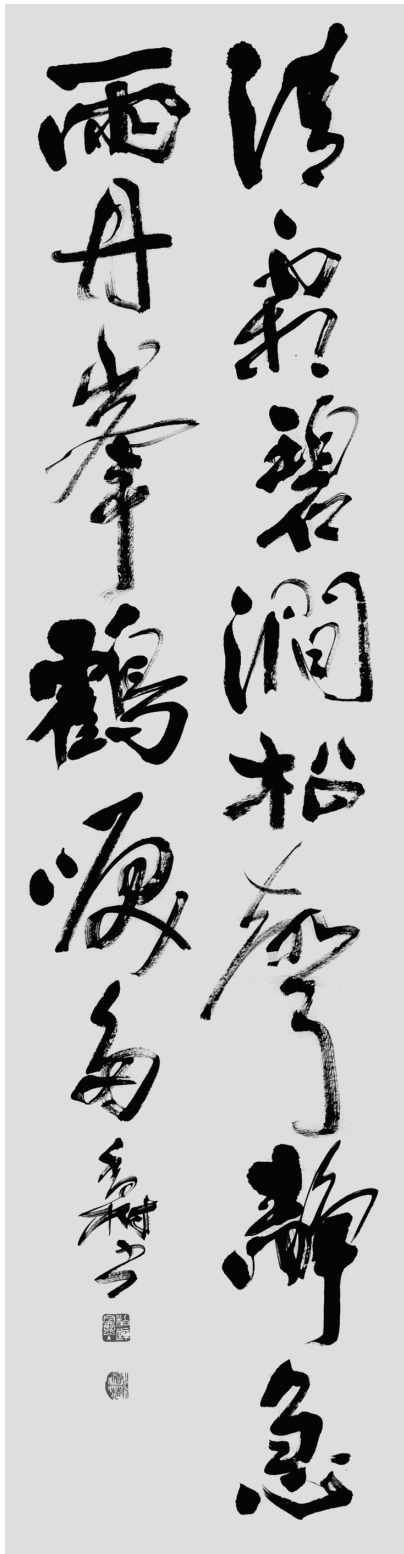 清霜碧澗松聲靜急
雨丹峯鶴唳多
書